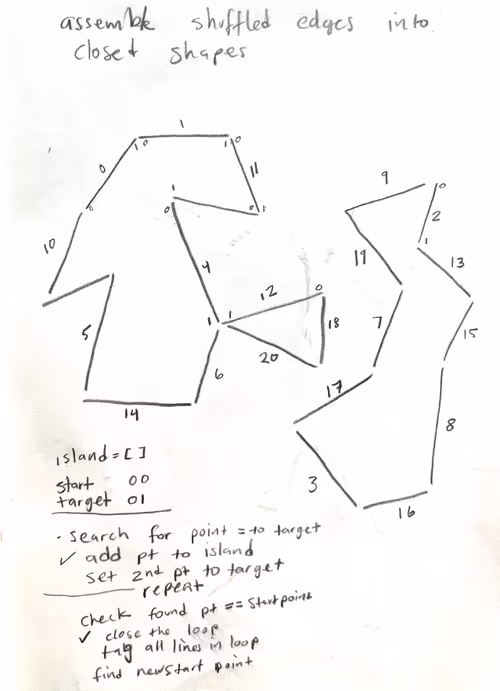 assemble shuffled edges into
closed shapes
1
1 0
1 0
0
11
0
1
0
0 1
10
9
0
2
1
19
13
4
12
0
5
7
1 1
18
15
6
20
17
14
8
3
16
island = [ ]
start 00
target 01
- search for point = to target
✓ add pt to island
set 2nd pt to target
repeat
check found pt == startpoint
✓ close the loop
tag all lines in loop
find new start point